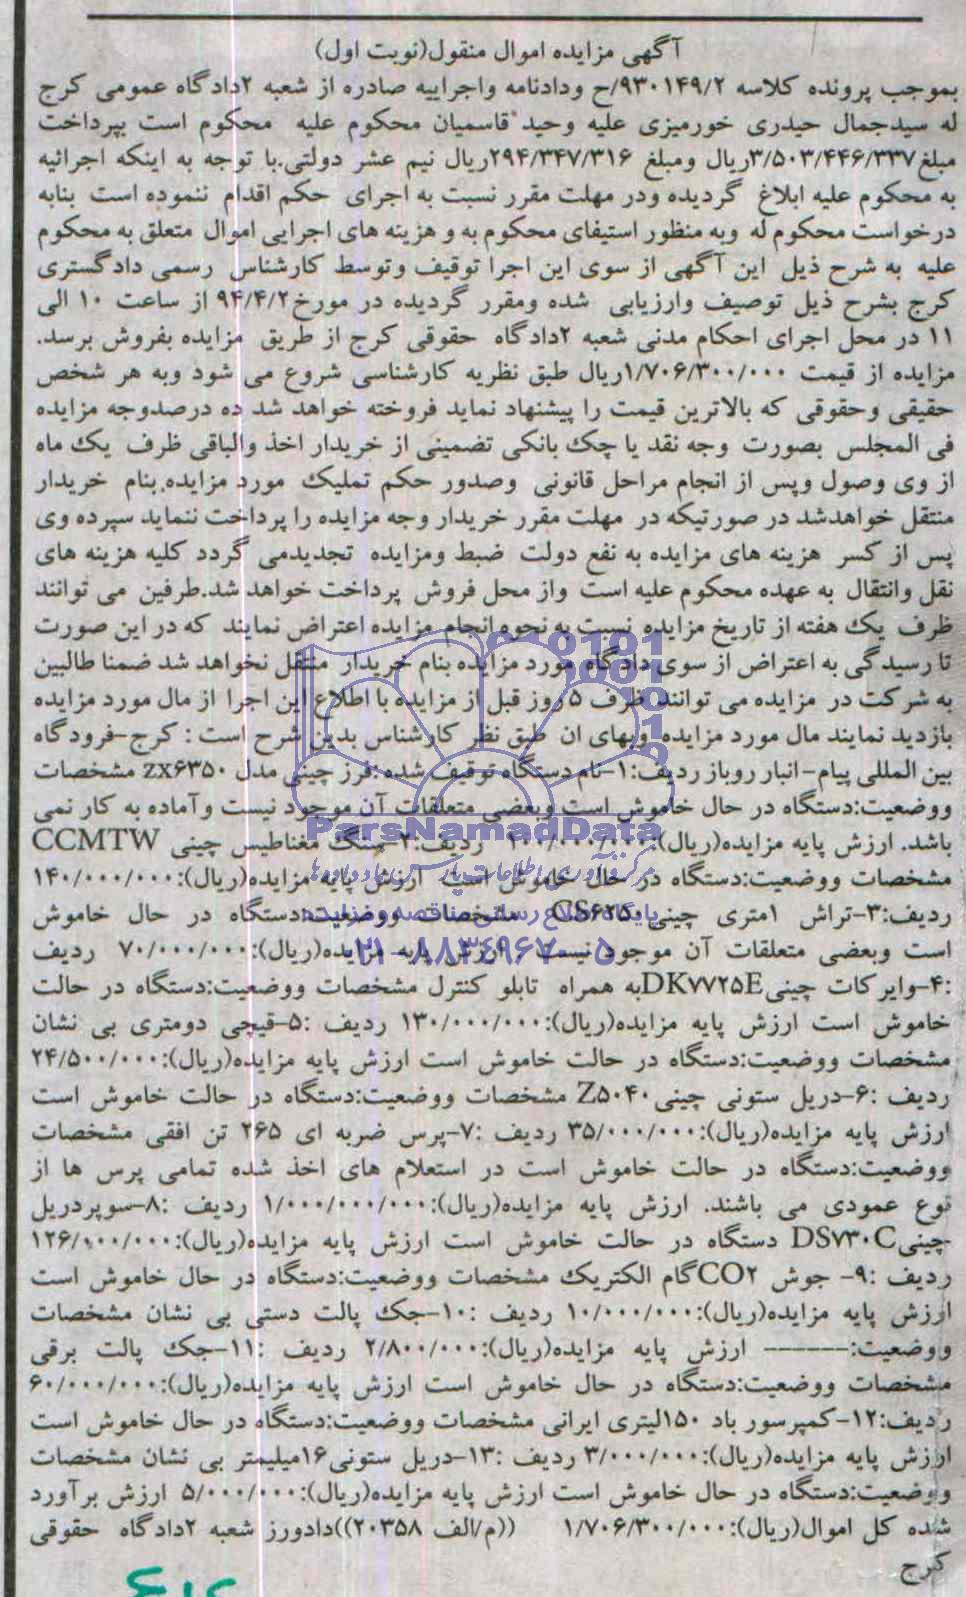 آگهی مزایده اموال منقول(نوبت اول)
بموجب پرونده کلاسه ۹۳۰۱۴۹/۲/ح ودادنامه واجراییه صادره از شعبه ۲دادگاه عمومی کرج
له سیدجمال حیدری خورمیزی علیه وحید قاسمیان محکوم علیه محکوم است بپرداخت
مبلغ۳/۵۰۳/۴۴۶/۳۳۷ریال ومبلغ ۲۹۴/۳۴۷/۳۱۶ریال نیم عشر دولتی.با توجه به اینکه اجرائیه
به محکوم علیه ابلاغ گردیده ودر مهلت مقرر نسبت به اجرای حکم اقدام ننموده است بنابه
درخواست محکوم له وبه منظور استیفای محکوم به و هزینه های اجرایی اموال متعلق به محکوم
علیه به شرح ذیل این آگهی از سوی این اجرا توقیف وتوسط کارشناس رسمی دادگستری
کرج بشرح ذیل توصیف وارزیابی شده ومقرر گردیده در مورخ۹۴/۴/۲ از ساعت ۱۰ الی
۱۱ در محل اجرای احکام مدنی شعبه ۲دادگاه حقوقی کرج از طریق مزایده بفروش برسد.
مزایده از قیمت ۱/۷۰۶/۳۰۰/۰۰۰ریال طبق نظریه کارشناسی شروع می شود وبه هر شخص
حقیقی وحقوقی که بالاترین قیمت را پیشنهاد نماید فروخته خواهد شد ده درصدوجه مزایده
فی المجلس بصورت وجه نقد یا چک بانکی تضمینی از خریدار اخذ والباقی ظرف یک ماه
از وی وصول وپس از انجام مراحل قانونی وصدور حکم تملیک مورد مزایده بنام خریدار
منتقل خواهدشد در صورتیکه در مهلت مقرر خریدار وجه مزایده را پرداخت ننماید سپرده وی
پس از کسر هزینه های مزایده به نفع دولت ضبط ومزایده تجدیدمی گردد کلیه هزینه های
نقل وانتقال به عهده محکوم علیه است واز محل فروش پرداخت خواهد شد.طرفین می توانند
ظرف یک هفته از تاریخ مزایده نسبت به نحوه انجام مزایده اعتراض نمایند که در این صورت
تا رسیدگی به اعتراض از سوی دادگاه مورد مزایده بنام خریدار منتقل نخواهد شد ضمنا طالبین
به شرکت در مزایده می توانند ظرف ۵ روز قبل از مزایده با اطلاع این اجرا از مال مورد مزایده
بازدید نمایند مال مورد مزایده وبهای ان طبق نظر کارشناس بدین شرح است : کرج-فرودگاه
بین المللی پیام-انبار روباز ردیف:۱-نام دستگاه توقیف شده :فرز چینی مدل zx۶۳۵۰ مشخصات
ووضعیت:دستگاه در حال خاموش است وبعضی متعلقات آن موجود نیست و آماده به کار نمی
ParsNamadData
باشد. ارزش پایه مزایده(ریال):۱۰۰/۰۰۰/۰۰۰ ردیف:۲-سنگ مغناطیس چینی CCMTW
مرکز فرآوری اطلاعات پارس نماد داده ها
مشخصات ووضعیت:دستگاه در حال خاموش است ارزش پایه مزایده(ریال):۱۴۰/۰۰۰/۰۰۰
پایگاه اطلاع رسانی مناقصه و مزایده
ردیف:۳-تراش ۱متری چینی CS۶۲۵۰ مشخصات ووضعیت:دستگاه در حال خاموش
۰۲۱-۸۸۳۴۹۶۷۰-۵
است وبعضی متعلقات آن موجود نیست . ارزش پایه مزایده(ریال):۷۰/۰۰۰/۰۰۰ ردیف
:۴-وایر کات چینیDK۷۷۲۵Eبه همراه تابلو کنترل مشخصات ووضعیت:دستگاه در حالت
خاموش است ارزش پایه مزایده(ریال):۱۳۰/۰۰۰/۰۰۰ ردیف :۵-قیچی دومتری بی نشان
مشخصات ووضعیت:دستگاه در حالت خاموش است ارزش پایه مزایده(ریال):۲۴/۵۰۰/۰۰۰
ردیف :۶-دریل ستونی چینیZ۵۰۴۰ مشخصات ووضعیت:دستگاه در حالت خاموش است
ارزش پایه مزایده(ریال):۳۵/۰۰۰/۰۰۰ ردیف :۷-پرس ضربه ای ۲۶۵ تن افقی مشخصات
ووضعیت:دستگاه در حالت خاموش است در استعلام های اخذ شده تمامی پرس ها از
نوع عمودی می باشند. ارزش پایه مزایده(ریال):۱/۰۰۰/۰۰۰/۰۰۰ ردیف :۸-سوپردریل
چینیDS۷۳۰C دستگاه در حالت خاموش است ارزش پایه مزایده(ریال):۱۲۶/۰۰۰/۰۰۰
ردیف :۹- جوش CO۲گام الکتریک مشخصات ووضعیت:دستگاه در حال خاموش است
ارزش پایه مزایده(ریال):۱۰/۰۰۰/۰۰۰ ردیف :۱۰-جک پالت دستی بی نشان مشخصات
ووضعیت:------- ارزش پایه مزایده(ریال):۲/۸۰۰/۰۰۰ ردیف :۱۱-جک پالت برقی
مشخصات ووضعیت:دستگاه در حال خاموش است ارزش پایه مزایده(ریال):۶۰/۰۰۰/۰۰۰
ردیف:۱۲-کمپرسور باد ۱۵۰لیتری ایرانی مشخصات ووضعیت:دستگاه در حال خاموش است
ارزش پایه مزایده(ریال):۳/۰۰۰/۰۰۰ ردیف :۱۳-دریل ستونی۱۶میلیمتر بی نشان مشخصات
ووضعیت:دستگاه در حال خاموش است ارزش پایه مزایده(ریال):۵/۰۰۰/۰۰۰ ارزش برآورد
شده کل اموال(ریال):۱/۷۰۶/۳۰۰/۰۰۰ ((م/الف ۲۰۳۵۸))دادورز شعبه ۲دادگاه حقوقی
کرج